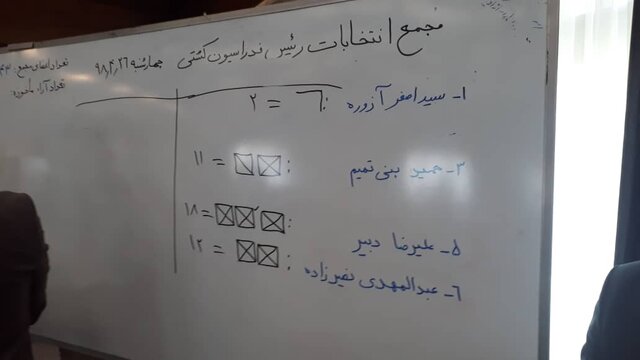 مجمع انتخابات رئیس فدراسیون کشتی چهارشنبه ۹۸,۴,۲۶
تعداد اعضای مجمع: ۴۳
تعداد آراء مأخوذه
۱- سید اصغر آزوره : = ۲
۳- حمید بنی تمیم : = ۱۱
۵- علیرضا دبیر : = ۱۸
۶- عبدالمهدی نصیرزاده : = ۱۲